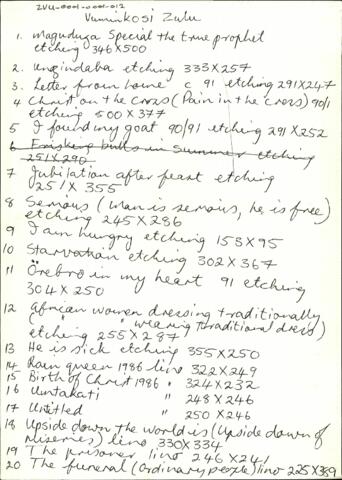 ZVU-0001-0001-012
Vuminkosi Zulu
1. Maguduza Special the true prophet
etching 346X500
2. Ungindaba etching 333X257
3. Letter from home c 91 etching 291X247
4 Christ on the cross (Pain in the cross) 90/1
etching 500X377
5 I found my goat 90/91 etching 291X252
6 Frisking bulls in Summer etching
251X290
7 Jubilation after feast etching
251X355
8 Serious (Man is serious, he is free)
etching 245X286
9 I am hungry etching 153X95
10 Starvation etching 302X367
11 Örebro in my heart 91 etching
304X250
12 African women dressing traditionally
( " " wearing traditional dress)
etching 255X287
13 He is sick etching 355X250
14 Rain queen 1986 lino 322X249
15 Birth of Christ 1986 " 324X232
16 Umtakati " 248X246
17 Untitled " 250X246
18 Upside down the world is (Upside down of
Miseries) lino 330X334
19 The prisoner lino 246X241
20 The funeral (Ordinary people) lino 225X359